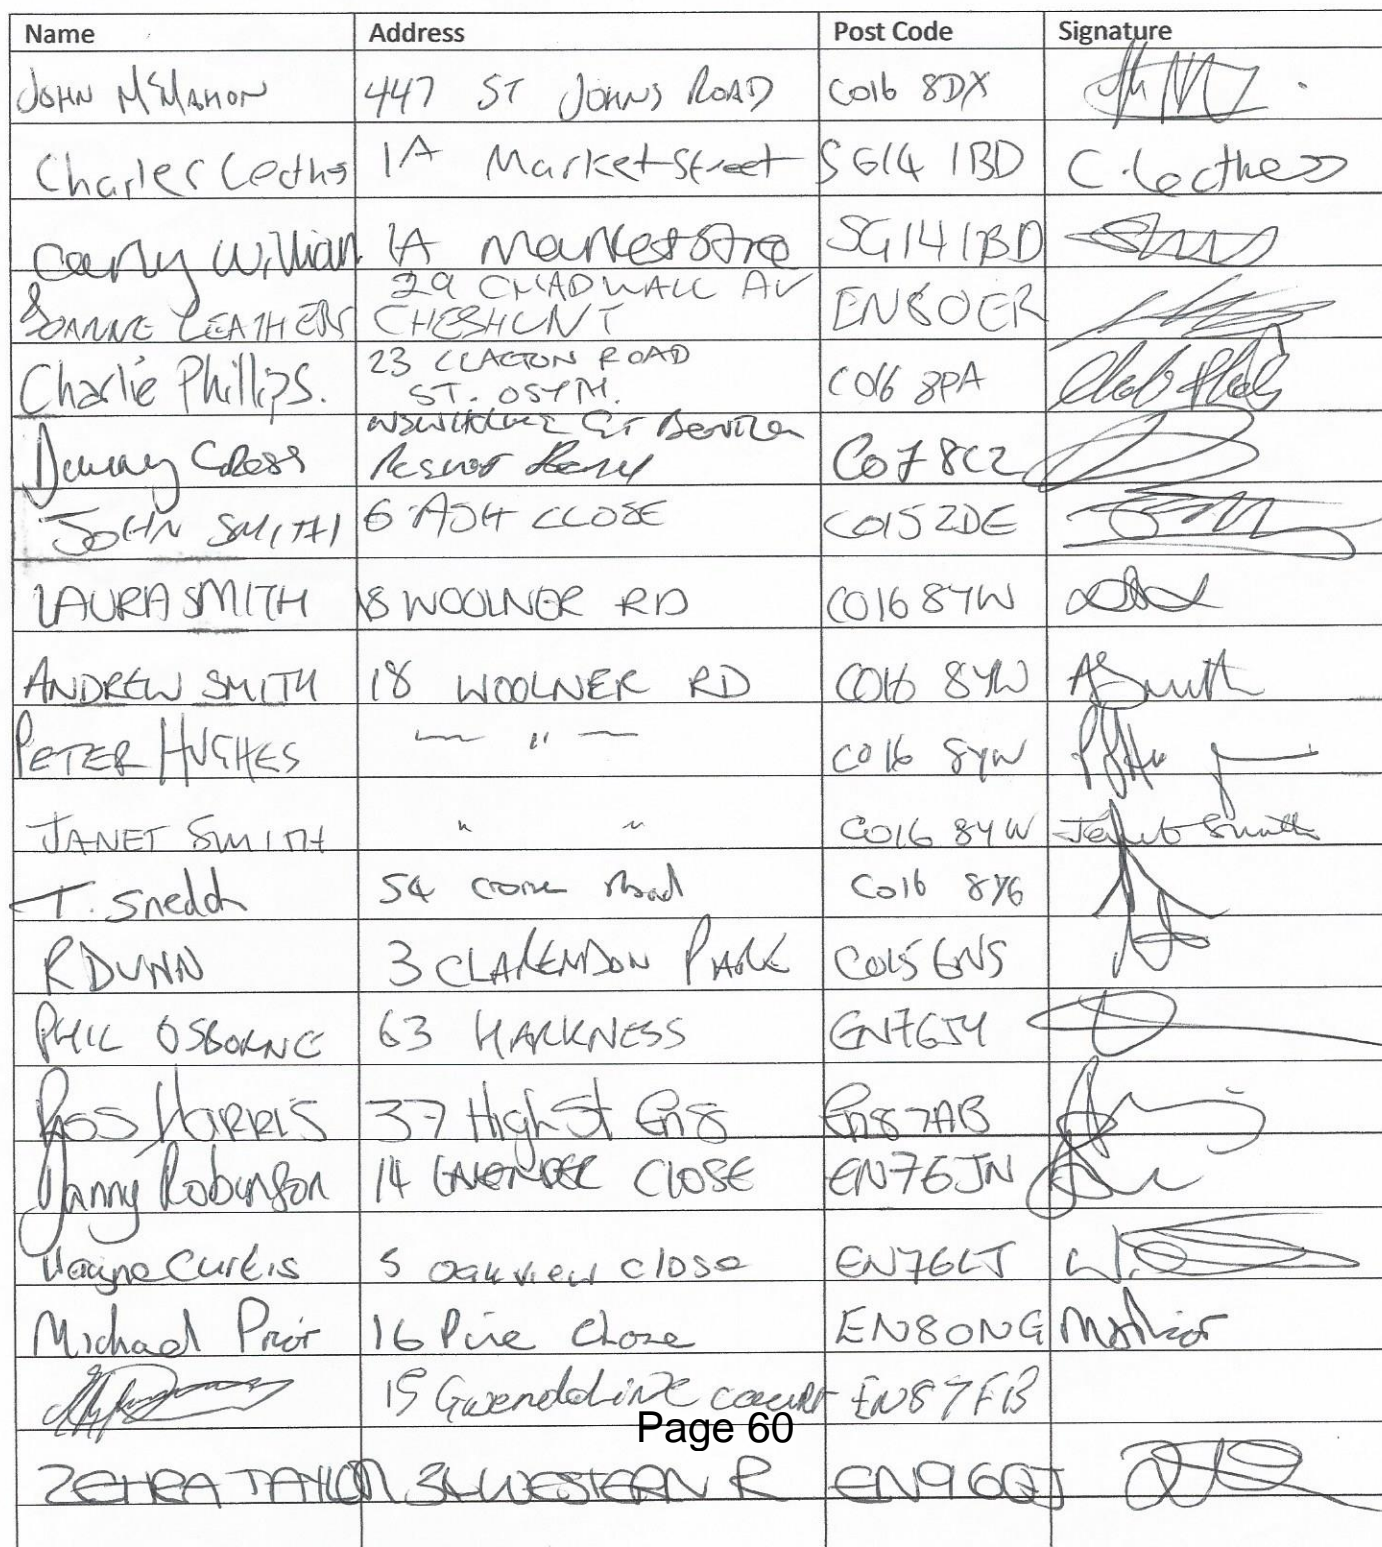 Name Address Post Code Signature
JOHN McMAHON 447 ST JOHNS ROAD CO16 8DX
Charles Leathes 1A Market Street SG14 1BD C. Leathes
Carly William 1A Market Stree SG14 1BD
29 CHADWALL AV
JOANNE LEATHERS CHESHUNT EN8 0ER
Charlie Phillips. 23 CLACTON ROAD
ST. OSYTH. CO16 8PA
Danny Cross CO7 8CZ
JOHN SMITH 6 ASH CLOSE CO15 2DE
LAURA SMITH 18 WOOLNER RD CO16 8YW
ANDREW SMITH 18 WOOLNER RD CO16 8YW ASmith
PETER HUGHES — " — CO16 8YW
JANET SMITH " " CO16 8YW Janet Smith
T. Snedd 54 Road CO16 8YG
R DUNN 3 CLARENDON PARK CO15 6NS
PHIL OSBORNE 63 HARKNESS EN7 6JY
ROSS HARRIS 37 High St En8 En8 7AB
Danny Robinson 14 CLOSE EN7 6JN
Wayne Curtis 5 Oakview close EN7 6LJ
Michael Prior 16 Pine Close EN8 0NG M Prior
15 Gwendoline court EN8 7FB
Page 60
ZEHRA TAYLOR 34 WESTERN R EN9 6QJ